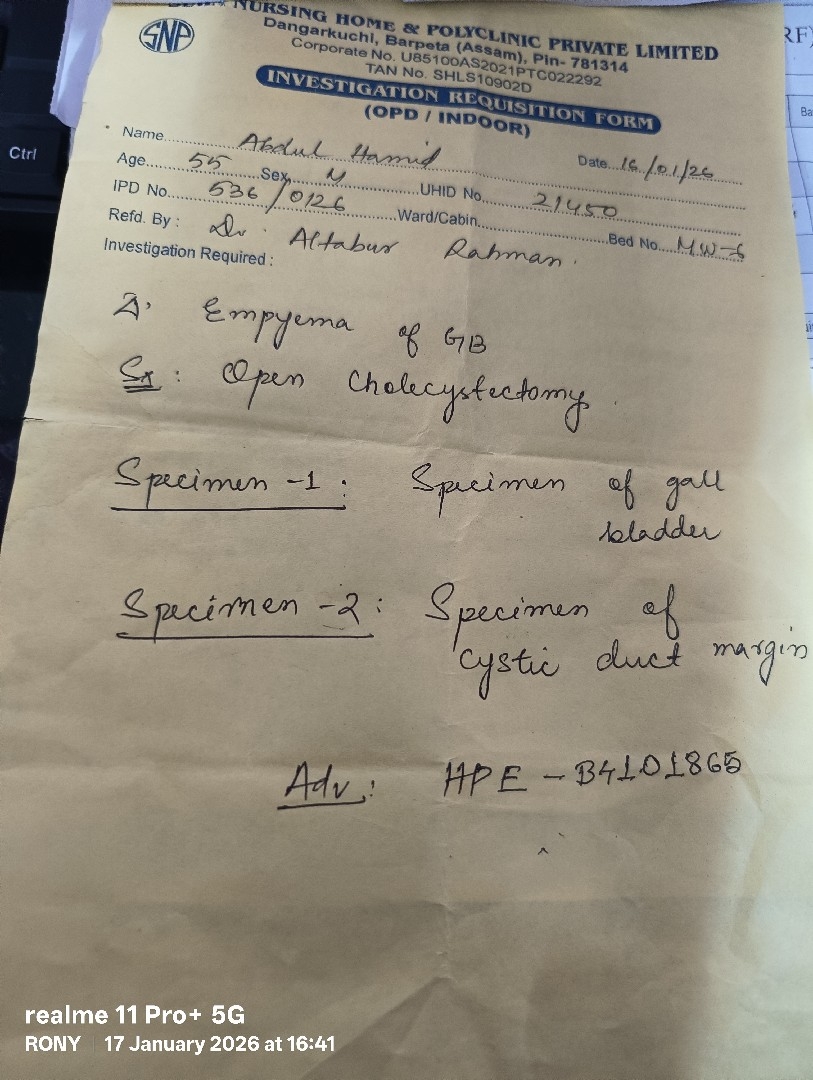 SNP
NURSING HOME & POLYCLINIC PRIVATE LIMITED
Dangarkuchi, Barpeta (Assam), Pin- 781314
Corporate No. U85100AS2021PTC022292
TAN No. SHLS10902D
INVESTIGATION REQUISITION FORM
(OPD / INDOOR)
Name Abdul Hamid Date 16/01/26
Age 55 Sex M UHID No. 21450
IPD No. 536/0126 Ward/Cabin Bed No. MW-6
Refd. By : Dr. Altabur Rahman.
Investigation Required :
Empyema of GB
Sx : Open Cholecystectomy.
Specimen -1 : Specimen of gall
bladder
Specimen -2 : Specimen of
cystic duct margin
Adv : HPE - B4101865
Ctrl
RF)
Ba
realme 11 Pro+ 5G
RONY 17 January 2026 at 16:41